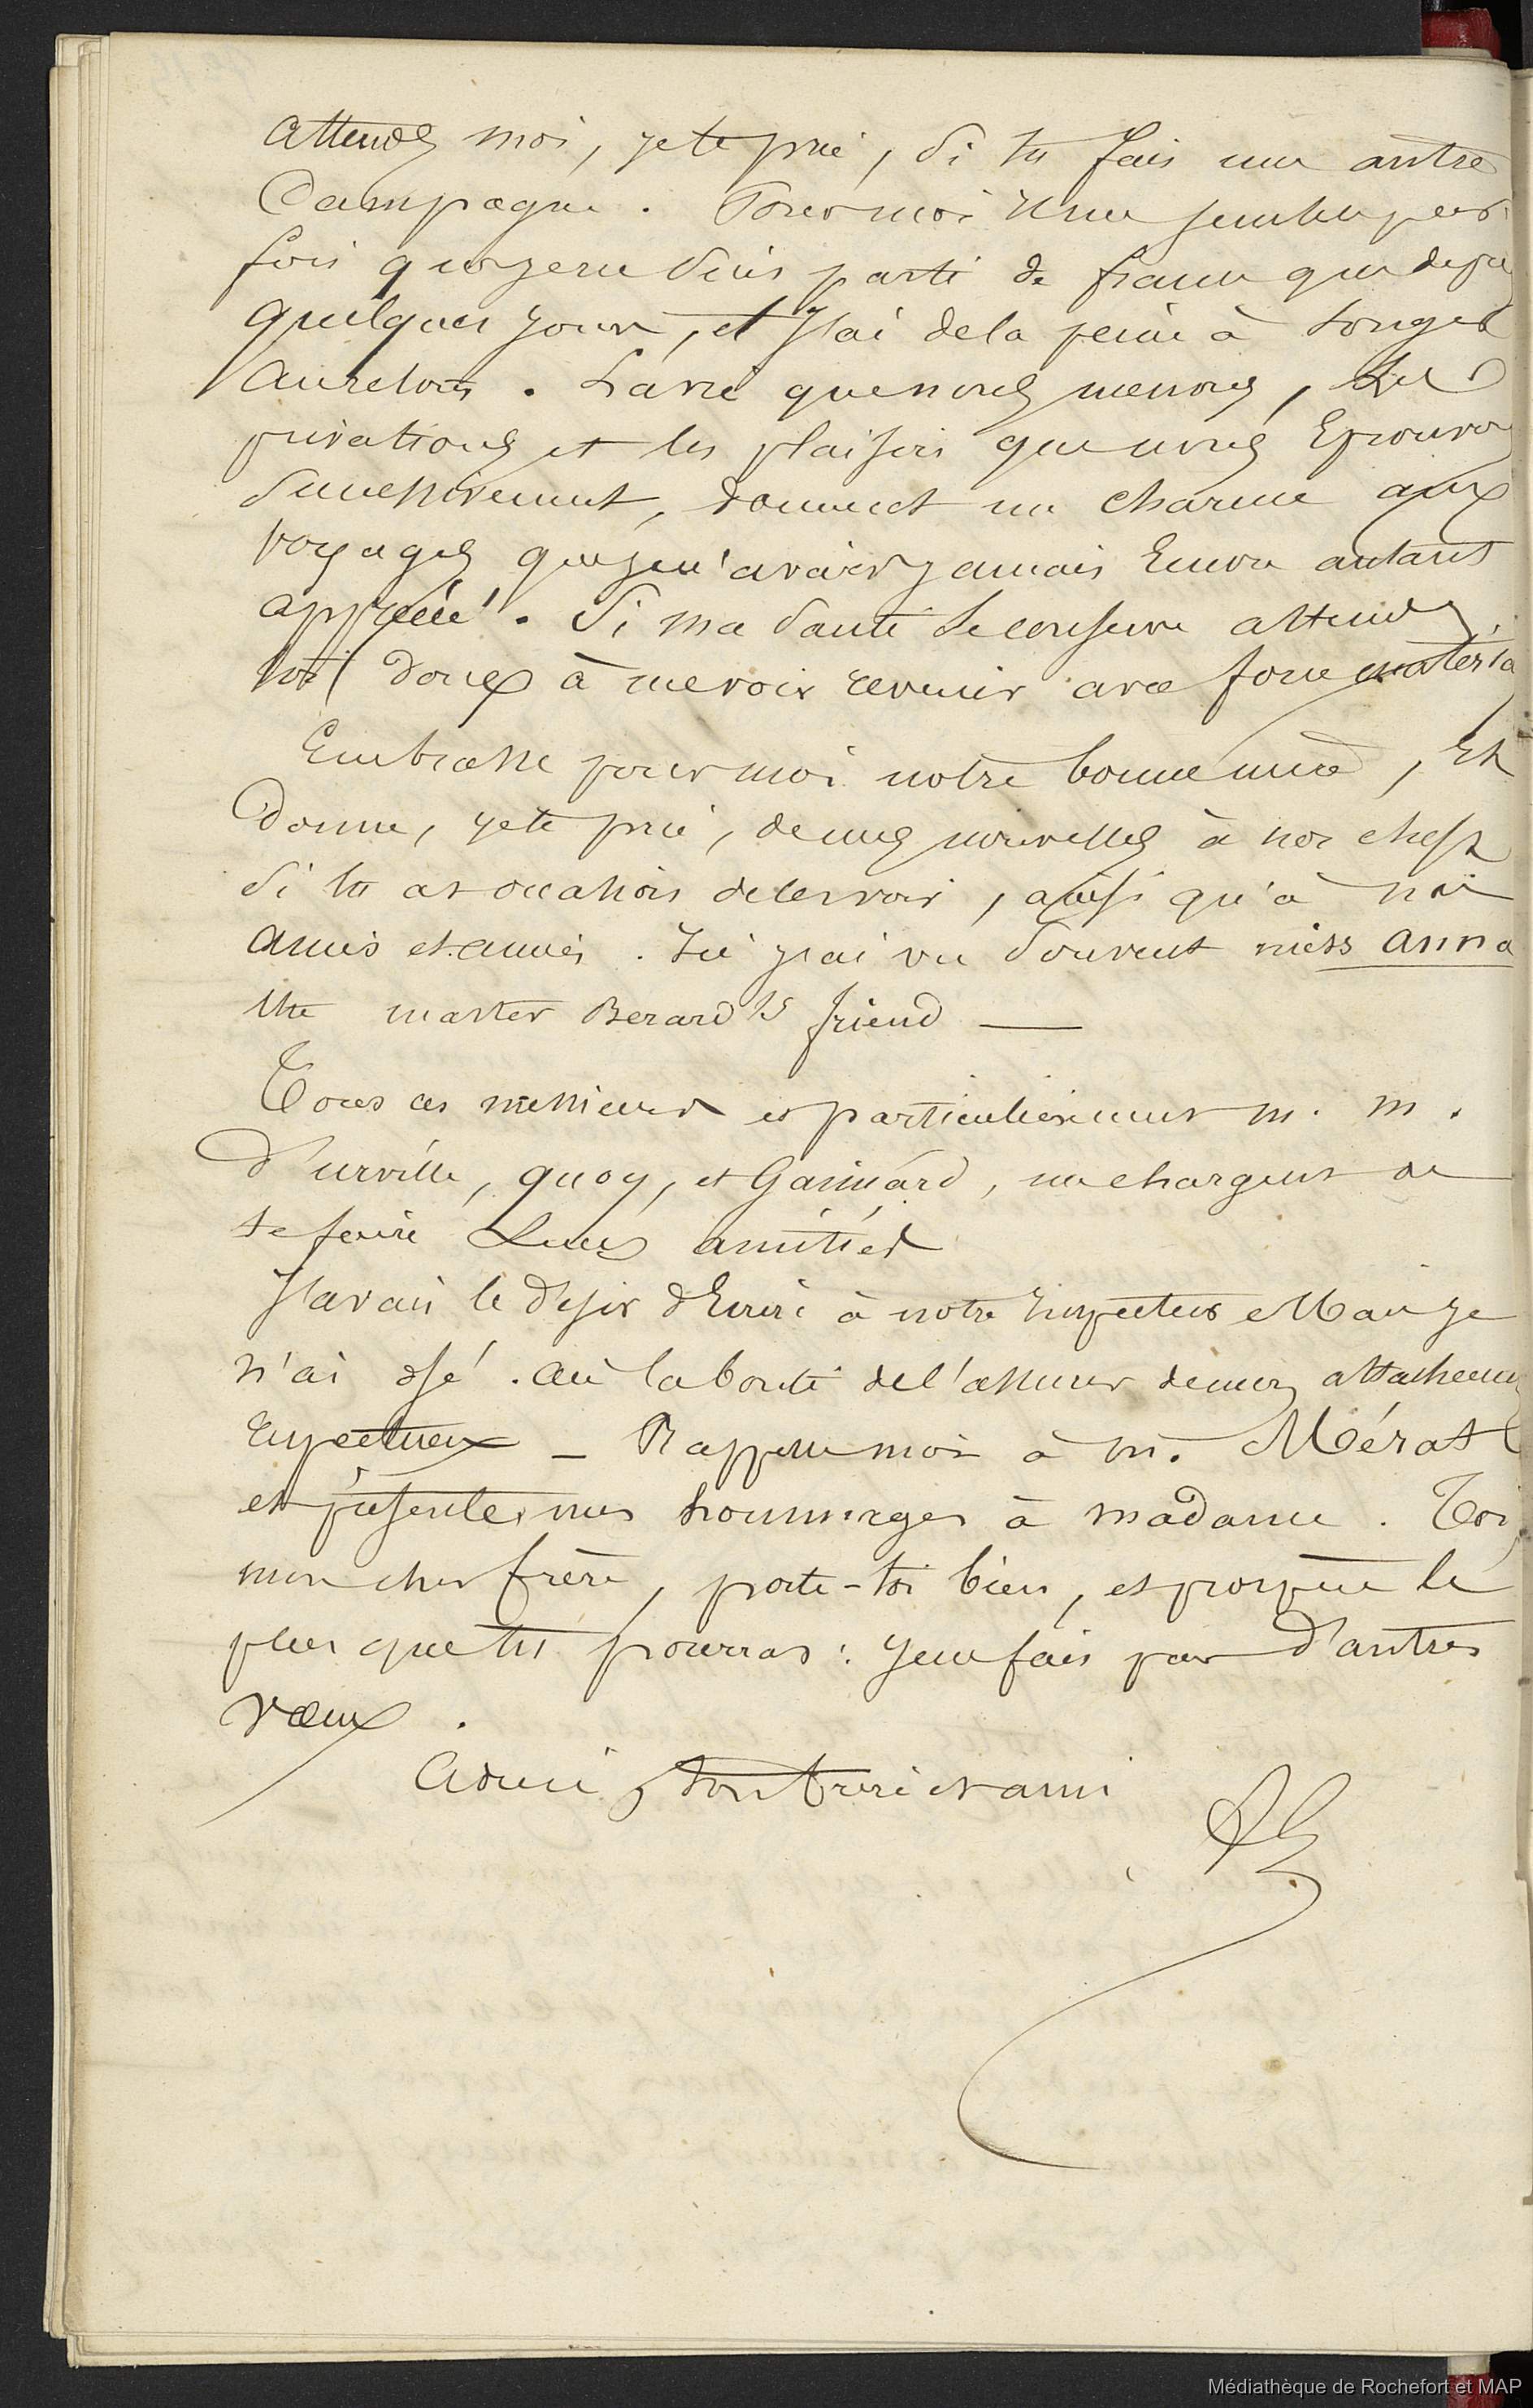 attends moi, je te prie, si tu fais une autre
Campagne. Pour moi il me semble par
fois que je ne suis parti de france que depuis
quelques jours, et J'ai de la peine à songer
au retour. La vie que nous menons, les
privations et les plaisirs que nous Eprouvons
successivement, donnent un charme aux
voyages que je n'avais jamais Encore autant
apprécié. Si ma santé se conserve attends
toi donc à me voir revenir avec force matéria
Embrasse pour moi notre bonne mère, Et
donne, je te prie, de mes nouvelles à nos chefs
si tu as occasion de les voir, ainsi qu'à nos
amis et amies. Ici j'ai vu souvent miss anna
the master Berard's friend —
Tous ces messieurs et particulièrement m. m.
d'urville, quoy, et Gaimard, me chargent de
te faire Leurs amitiés
J'avais le désir d'Ecrire à notre inspecteur Mais je
n'ai osé. aie la bonté de l'assurer de mon attachement
respectueux — Rappelle moi à m. Mérat
et présente mes hommages à madame. Toi,
mon cher frère, porte-toi bien, et prospère le
plus que tu pourras : je ne fais pas d'autres
vœux.
adieu, ton frère et ami
Médiathèque de Rochefort et MAP